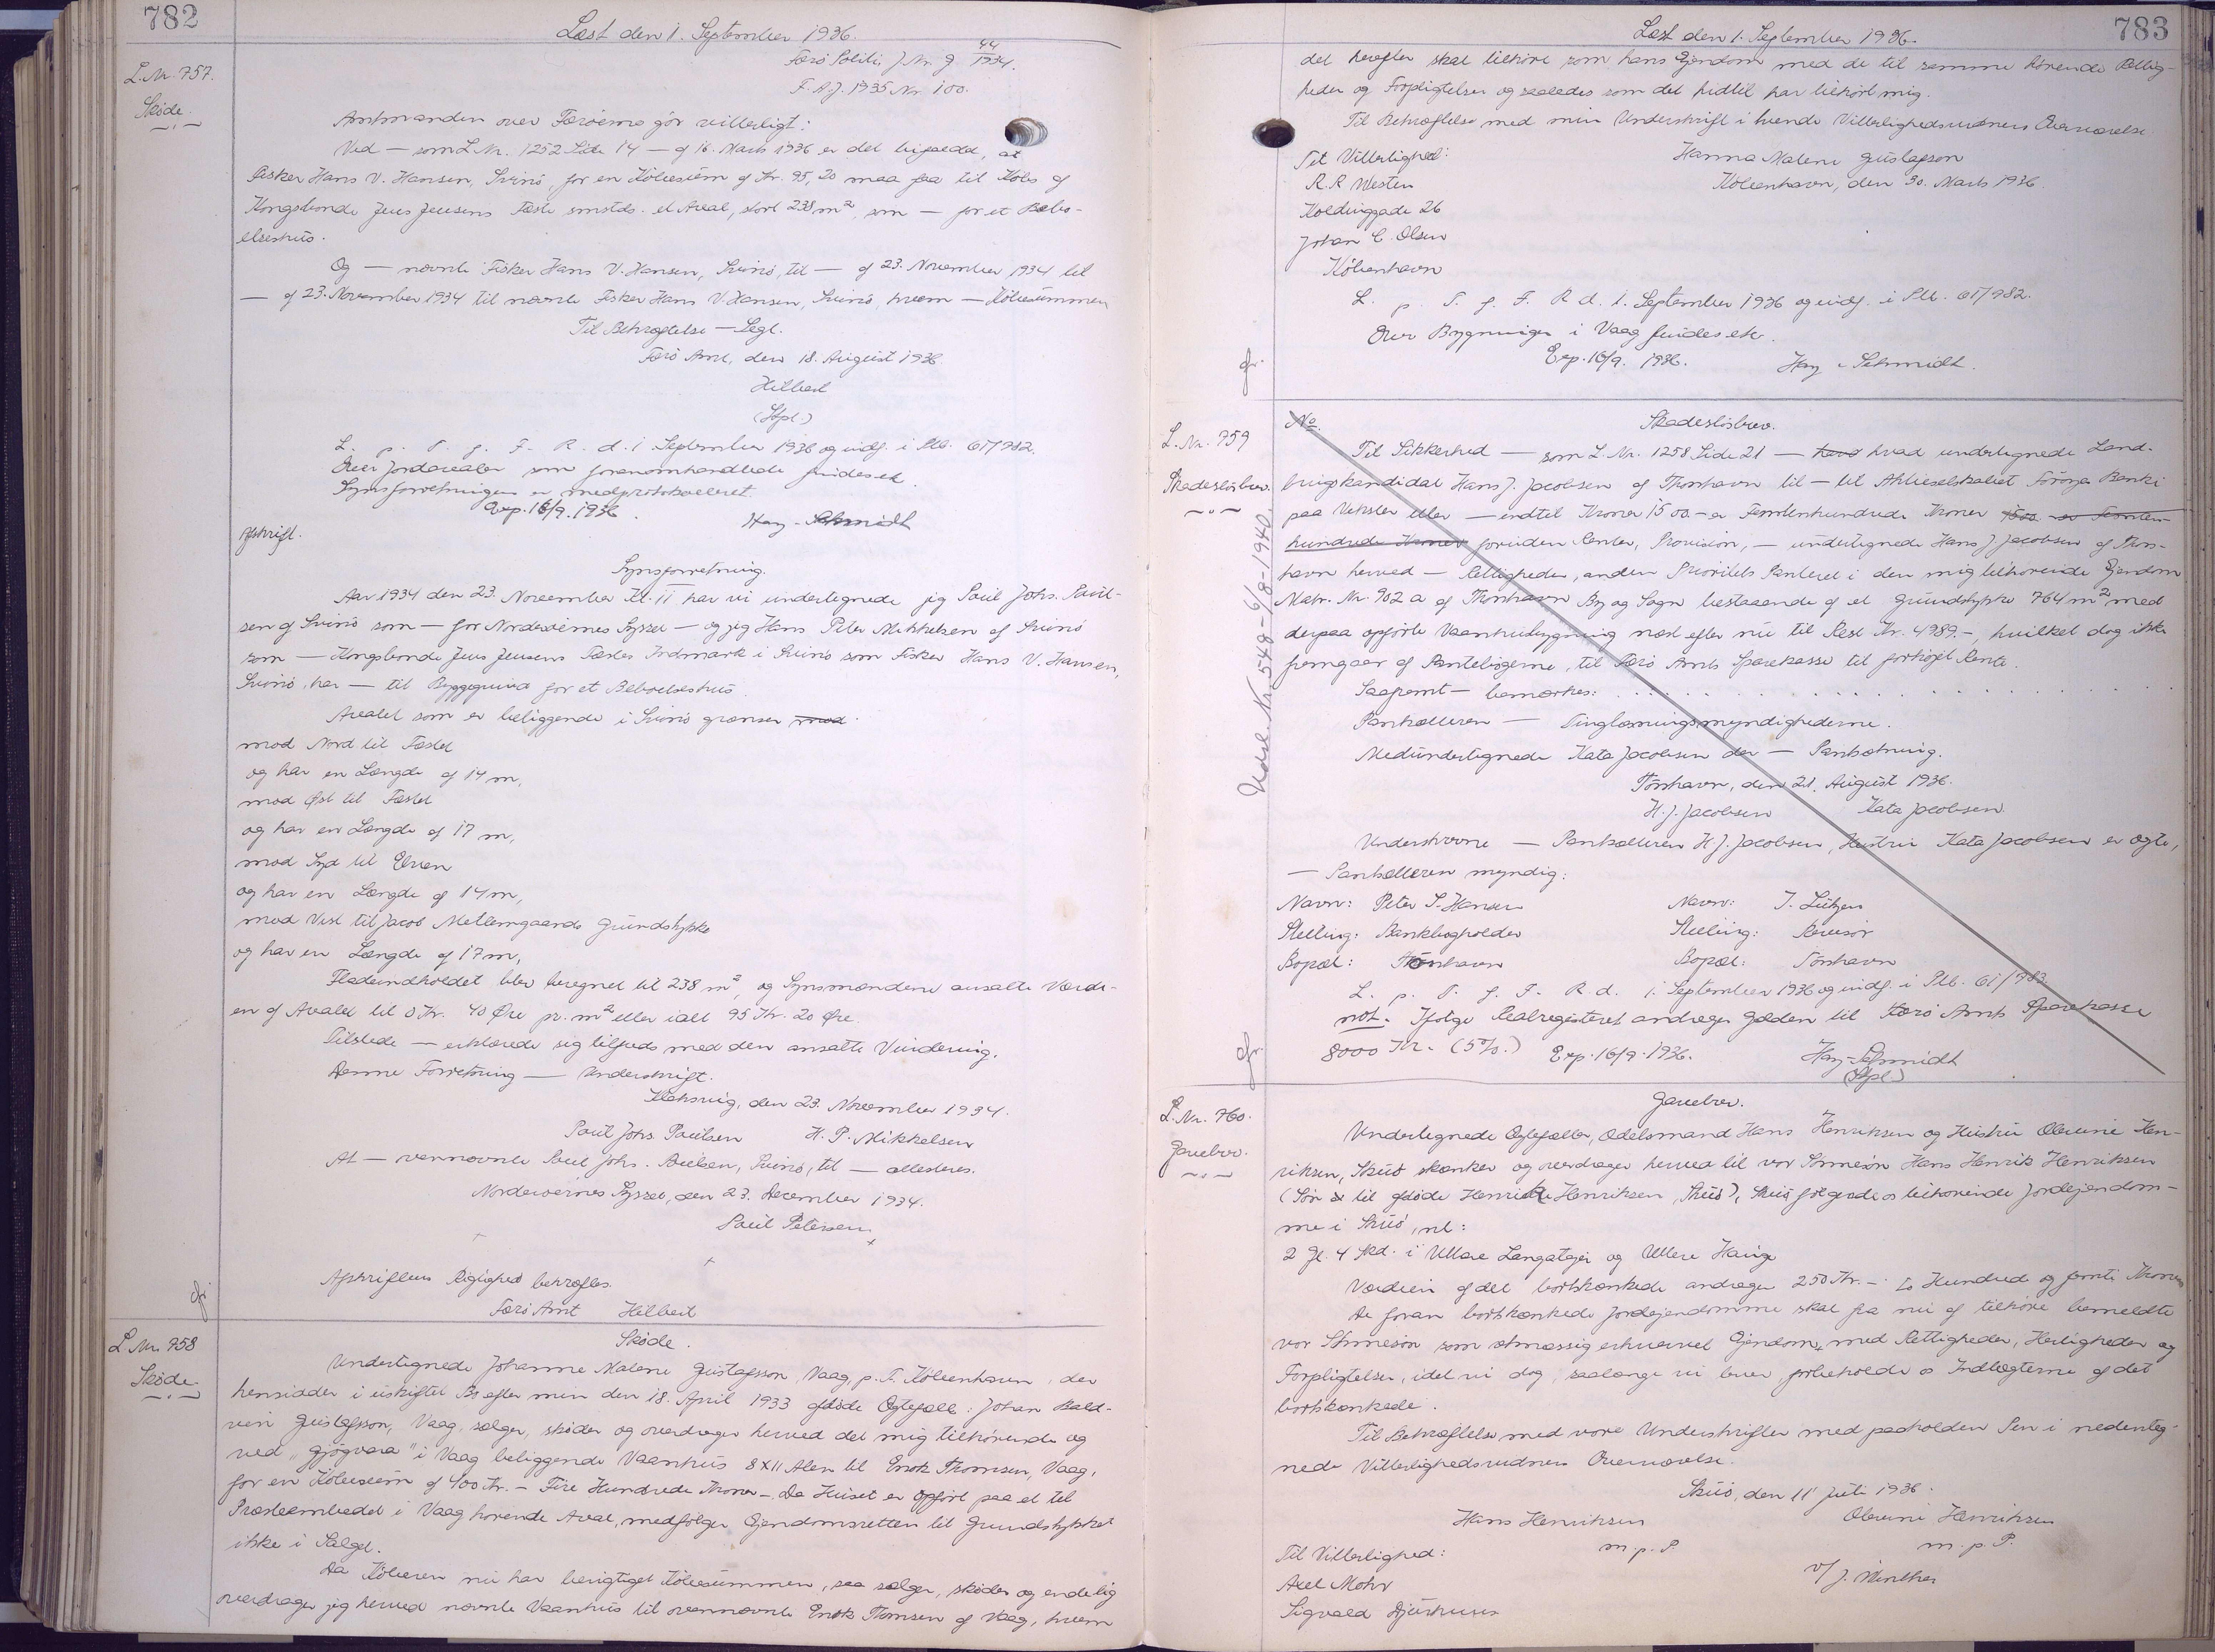 782
Læst den 1. September 1936.
L. Nr. 757.
Skøde.
Færö Politi J. Nr. J 44/1934.
F. A. J. 1935 Nr. 100.
Amtmanden over Færöerne gör vitterligt:
Ved — som L. Nr. 1252 Side 14 — af 16. Marts 1936 er det bifaldt, at
Fisker Hans V. Hansen, Svinö, for en Köbesum af Kr. 95,20 maa faa til Köbs af
Kongsbonde Jens Jensens Fæste smstds. et Areal, stort 238 m², som — for et Bebo-
elseshus.
Og — nævnte Fisker Hans V. Hansen, Svinö, til — af 23. November 1934 til
— af 23. November 1934 til nævnte Fisker Hans V. Hansen, Svinö, hvem — Köbesummen
Til Bekræftelse — Segl.
Færö Amt, den 18. August 1936.
Hilbert
(Stpl.)
L. p. T. f. F. R. d. 1 September 1936 og indf. i Ptb. 61/782.
Over Jordarealer som foranomhandlede findes ek.
Synsforretningen er medprotokolleret.
Exp. 16/9. 1936.
Hay-Schmidt
Afskrift.
Synsforretning.
Aar 1934 den 23. November Kl. 11 har vi undertegnede jeg Poul Johs. Poul-
sen af Svinö som — for Norderöernes Syssel — og jeg Hans Peter Mikkelsen af Svinö
som — Kongsbonde Jens Jensens Fæstes Indmark i Svinö som Fisker Hans V. Hansen,
Svinö, har — til Byggegrund for et Beboelseshus.
Arealet som er beliggende i Svinö grænser mod
mod Nord til Fæstet
og har en Længde af 14 m,
mod Øst til Fæstet
og har en Længde af 17 m,
mod Syd til Elven
og har en Længde af 14 m,
mod Vest til Jacob Mellemgaards Grundstykke
og har en Længde af 17 m,
Fladeindholdet blev beregnet til 238 m², og Synsmændene ansatte Værdi-
en af Arealet til 0 Kr. 40 Øre pr. m² eller ialt 95 Kr. 20 Øre.
Tilstede — erklærede sig tilfreds med den ansatte Vurdering.
Denne Forretning — Underskrift.
Klaksvig, den 23. November 1934.
Poul Johs. Poulsen H. P. Mikkelsen
At — ovennævnte Poul Johs. Poulsen, Svinö, til — attesteres.
Norderöernes Syssel, den 23. December 1934.
Poul Petersen
Afskriftens Rigtighed bekræftes.
Færö Amt Hilbert
L. Nr. 758
Skøde.
Skøde.
Undertegnede Johanne Malene Gustafsson, Vaag, p. T. Köbenhavn, der
hensidder i uskiftet Bo efter min den 18. April 1933 afdöde Ægtefælle: Johan Bald-
vin Gustafsson, Vaag, sælger, sköder og overdrager herved det mig tilhörende og
ved „Gjógvara" i Vaag beliggende Vaanhus 8X11 Alen til Enok Thomsen, Vaag,
for en Köbesum af 400 Kr. — Fire Hundrede Kroner — Da Huset er opfört paa et til
Præsteembedet i Vaag hörende Areal, medfölger Ejendomsretten til Grundstykket
ikke i Salget.
Da Köberen nu har berigtiget Köbesummen, saa sælger, sköder og endelig
overdrager jeg herved nævnte Vaanhus til ovennævnte Enok Thomsen af Vaag, hvem
783
Læst den 1. September 1936.
det herefter skal tilhöre som hans Ejendom med de til samme hörende Rettig-
heder og Forpligtelser og saaledes som det hidtil har tilhört mig.
Til Bekræftelse med min Underskrift i tvende Vitterlighedsvidners Overværelse.
Til Vitterlighed: Hanna Malene Gustafson
R. R. Westen Köbenhavn, den 30. Marts 1936.
Koldinggade 26
Johan C. Olsen
Köbenhavn
L. p. T. f. F. R. d. 1. September 1936 og indf. i Ptb. 61/782.
Over Bygninger i Vaag findes ek.
Exp. 16/9. 1936. Hay-Schmidt.
L. Nr. 759
Skadeslösbrev.
Udsl. Nr. 548 - 6/8 - 1940.
No. Skadeslösbrev.
Til Sikkerhed — som L. Nr. 1258 Side 21 — hvad hvad undertegnede Land-
brugskandidat Hans J. Jacobsen af Thorshavn til — til Aktieselskabet Föroya Banki
paa Veksler eller — indtil Kroner 1500.- er Femtenhundrede Kroner 1500 er Femten-
hundrede Kroner foruden Renter, Provision, — undertegnede Hans J. Jacobsen af Thors-
havn herved — Rettigheder, anden Prioritets Panteret i den mig tilhörende Ejendom
Matr. Nr. 902 a af Thorshavn By og Sogn bestaaende af et Grundstykke 764 m² med
derpaa opförte Vaanhusbygning næst efter nu til Rest Kr. 4989.-, hvilket dog ikke
fremgaar af Pantebögerne, til Færö Amts Sparekasse til forhöjet Rente.
Saafremt — bemærkes: . . . . . . . . . . . . . .
Panthaveren — Tinglæsningsmyndighederne.
Medundertegnede Kata Jacobsen der — Pantsætning.
Tórshavn, den 21. August 1936.
H. J. Jacobsen Kata Jacobsen
Underskrevne — Pantsætteren H. J. Jacobsen, Hustru Kata Jacobsen er ægte,
— Pantsætteren myndig:
Navn: Peter S. Hansen Navn: J. Lützen
Stilling: Bankbogholder Stilling: Revisor
Bopæl: Tórshavn Bopæl: Tórshavn
L. p. T. f. F. R. d. 1. September 1936 og indf. i Ptb. 61/783.
not. Ifölge Realregisteret andrager Gælden til Færö Amts Sparekasse
8000 Kr. (5%.) Exp. 16/9. 1936. Hay-Schmidt
(Stpl.)
L. Nr. 760.
Gavebrev.
Gavebrev.
Undertegnede Ægtefæller, Odelsmand Hans Henriksen og Hustru Olevine Hen-
riksen, Skuö skænker og overdrager herved til vor Sönnesön Hans Henrik Henriksen
(Sön til afdöde Henrik Henriksen, Skuö), Skuö fölgende os tilhörende Jordejendom-
me i Skuö, nl:
2 Gl. 4 Skd. i Uttare Langateigi og Uttere Haugi
Værdien af det bortskænkede andrager 250 Kr. — To Hundred og femti Kroner
De foran bortskænkede Jordejendomme skal fra nu af tilhöre bemeldte
vor Sönnesön som retmæssig erhvervet Ejendom, med Rettigheder, Herligheder og
Forpligtelser, idet vi dog, saalænge vi lever, forbeholde os Indtægterne af det
bortskænkede.
Til Bekræftelse med vore Underskrifter med paaholden Pen i nedenteg-
nede Vitterlighedsvidners Overværelse.
Skuö, den 11 Juli 1936.
Hans Henriksen Olevine Henriksen
Til Vitterlighed: m. p. P. m. p. P.
Axel Mohr v/ J. Winther
Sigvald Djurhuus